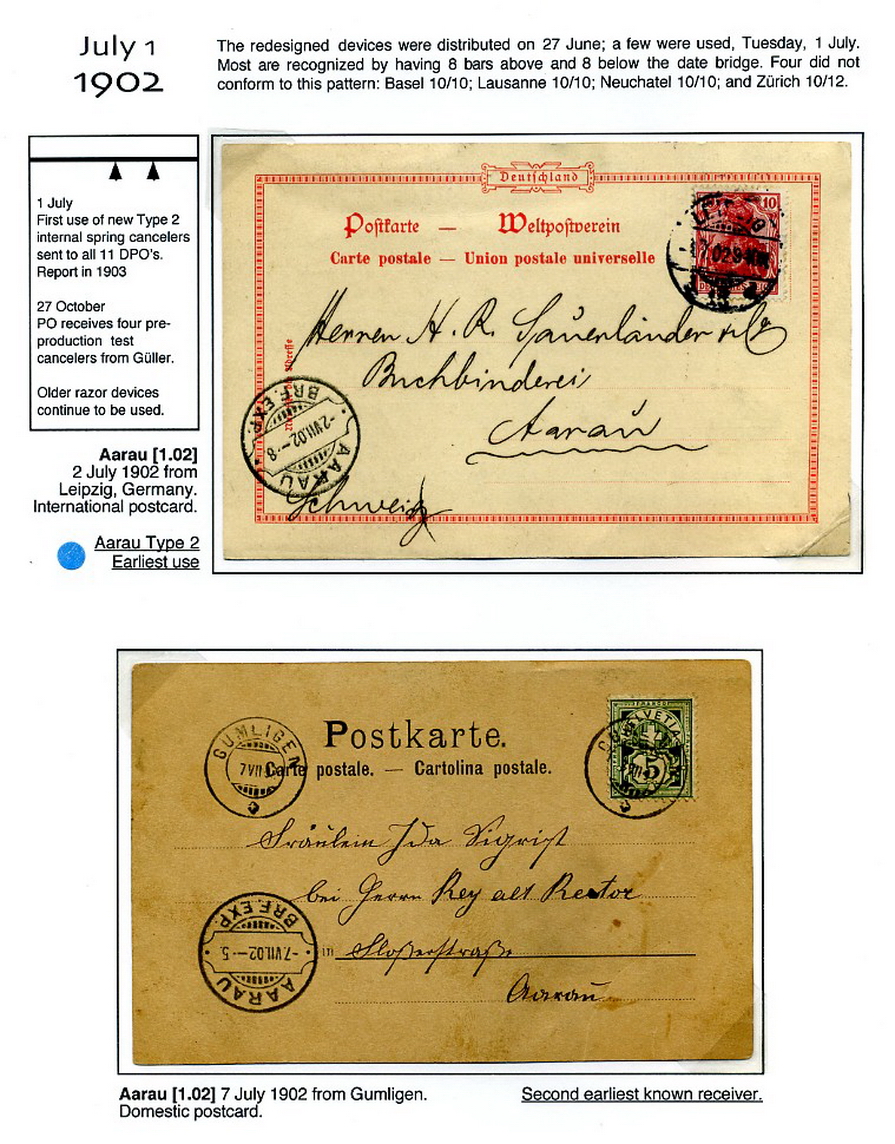 July 1
1902
The redesigned devices were distributed on 27 June; a few were used, Tuesday, 1 July.
Most are recognized by having 8 bars above and 8 below the date bridge. Four did not
conform to this pattern: Basel 10/10; Lausanne 10/10; Neuchatel 10/10; and Zürich 10/12.
1 July
First use of new Type 2
internal spring cancelers
sent to all 11 DPO's.
Report in 1903
27 October
PO receives four pre-
production test
cancelers from Güller.
Older razor devices
continue to be used.
Aarau [1.02]
2 July 1902 from
Leipzig, Germany.
International postcard.
Aarau Type 2
Earliest use
Deutschland
Postkarte — Weltpostverein
Carte postale — Union postale universelle
10
DEUTSCHES REICH
Herren H. R. Sauerländer & Co
Buchbinderei
Aarau
Schweiz
BRF. EXP.
-2.VII.02.-8
AARAU
Postkarte.
Carte postale. — Cartolina postale.
GUMLIGEN
7 VII
FRANCO
HELVETIA
5
Fräulein Ida Sigrist
bei Herrn Rey alt Rector
in
Aarau
BRF. EXP.
-7.VII.02.-5.
AARAU
Aarau [1.02] 7 July 1902 from Gumligen.
Domestic postcard.
Second earliest known receiver.